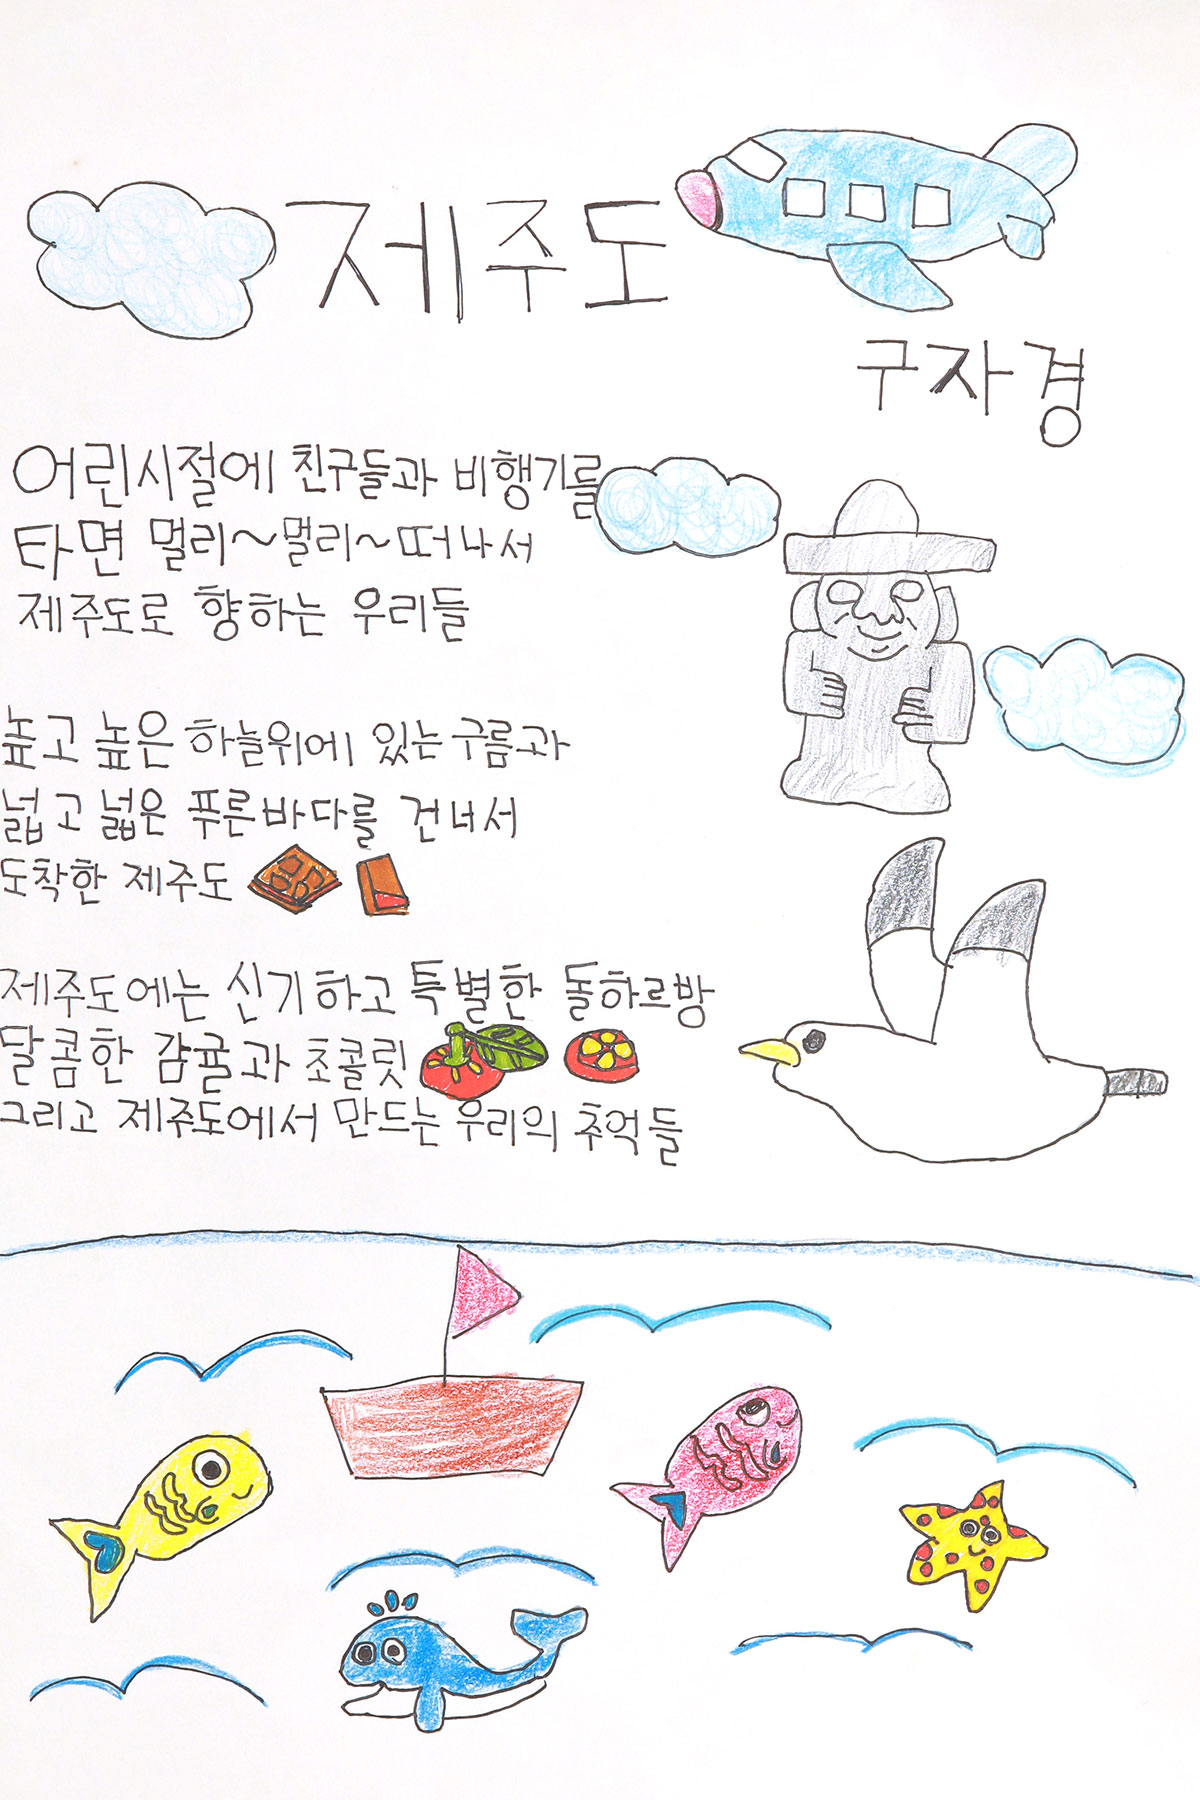 제주도
구자경
어린시절에 친구들과 비행기를
타면 멀리~멀리~떠나서
제주도로 향하는 우리들
높고 높은 하늘위에 있는 구름과
넓고 넓은 푸른바다를 건너서
도착한 제주도
제주도에는 신기하고 특별한 돌하르방
달콤한 감귤과 초콜릿
그리고 제주도에서 만드는 우리의 추억들